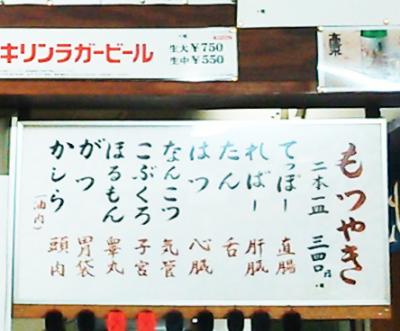 キリンラガービール
生大 ¥750
生中 ¥550
もつやき
二本一皿 三四〇円
てっぽー 直腸
ればー 肝臓
たん 舌
はつ 心臓
なんこつ 気管
こぶくろ 子宮
ほるもん 睾丸
がつ 胃袋
かしら 頭肉
(油肉)